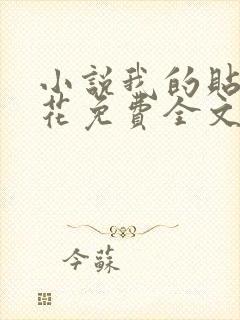 小說我的貼
花免費全文
今蘇